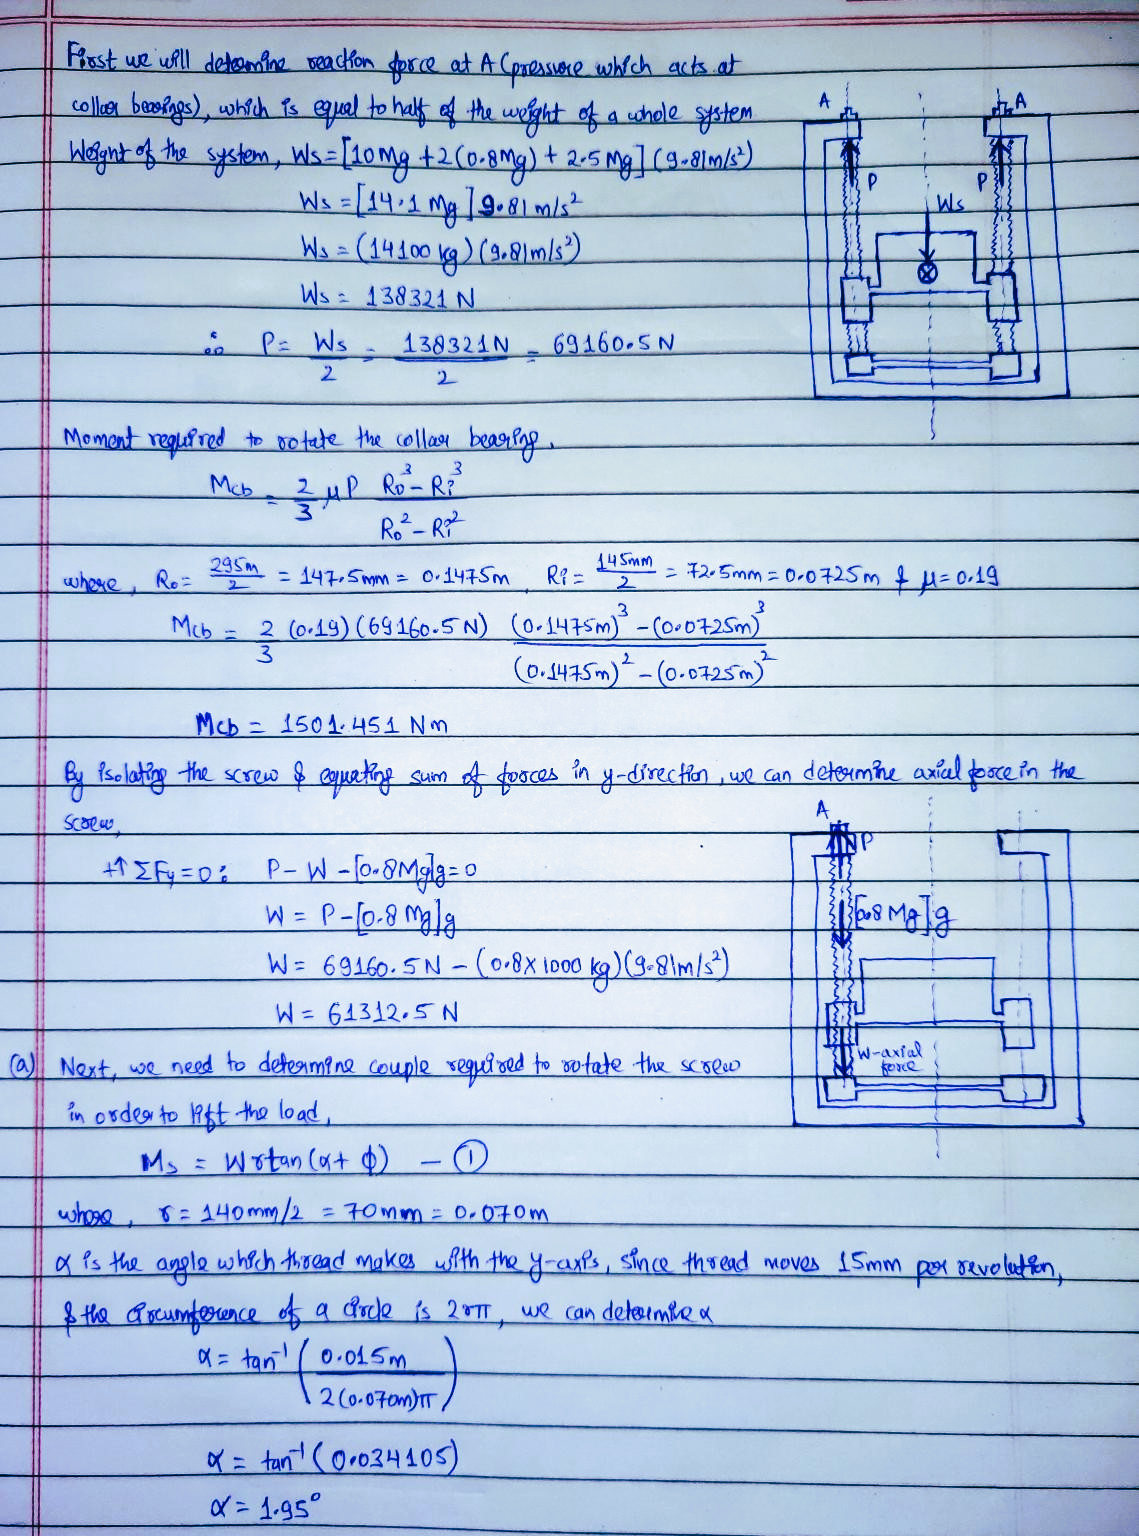 First we will determine reaction force at A (pressure which acts at
collar bearings), which is equal to half of the weight of a whole system
Weight of the system, Ws = [10Mg + 2(0.8Mg) + 2.5Mg] (9.81m/s²)
Ws = [14.1 Mg] 9.81 m/s²
Ws = (14100 kg) (9.81m/s²)
Ws = 138321 N
∴ P = Ws/2 = 138321N/2 = 69160.5 N
A A
P P
Ws
Moment required to rotate the collar bearing,
Mcb = 2/3 μP (Ro³ - Ri³)/(Ro² - Ri²)
where, Ro = 295m/2 = 147.5mm = 0.1475m Ri = 145mm/2 = 72.5mm = 0.0725m & μ = 0.19
Mcb = 2/3 (0.19) (69160.5 N) ((0.1475m)³ - (0.0725m)³)/((0.1475m)² - (0.0725m)²)
Mcb = 1501.451 Nm
By isolating the screw & equating sum of forces in y-direction, we can determine axial force in the
screw,
+↑ ΣFy = 0: P - W - [0.8Mg]g = 0
W = P - [0.8 Mg]g
W = 69160.5 N - (0.8 x 1000 kg) (9.81m/s²)
W = 61312.5 N
A
P
[0.8 Mg]g
W-axial
force
(a) Next, we need to determine couple required to rotate the screw
in order to lift the load,
Ms = Wrtan(α + φ) - ①
where, r = 140mm/2 = 70mm = 0.070m
α is the angle which thread makes with the y-axis, since thread moves 15mm per revolution,
& the circumference of a circle is 2rπ, we can determine α
α = tan⁻¹ (0.015m/2(0.070m)π)
α = tan⁻¹ (0.034105)
α = 1.95°